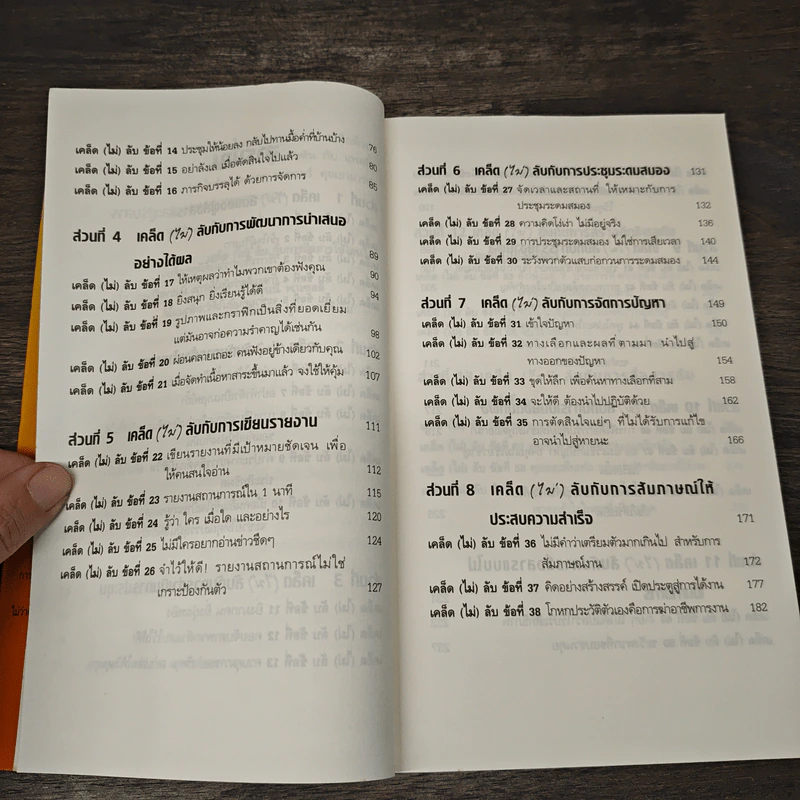 เคล็ด (ไม่) ลับ ข้อที่ 14 ประชุมให้น้อยลง กลับไปทานมื้อค่ำที่บ้านบ้าง 76
เคล็ด (ไม่) ลับ ข้อที่ 15 อย่าลังเล เมื่อตัดสินใจไปแล้ว 80
เคล็ด (ไม่) ลับ ข้อที่ 16 ภารกิจบรรลุได้ ด้วยการจัดการ 85
ส่วนที่ 4 เคล็ด (ไม่) ลับกับการพัฒนาการนำเสนอ
อย่างได้ผล 89
เคล็ด (ไม่) ลับ ข้อที่ 17 ให้เหตุผลว่าทำไมพวกเขาต้องฟังคุณ 90
เคล็ด (ไม่) ลับ ข้อที่ 18 ยิ่งสนุก ยิ่งเรียนรู้ได้ดี 94
เคล็ด (ไม่) ลับ ข้อที่ 19 รูปภาพและกราฟิกเป็นสิ่งที่ยอดเยี่ยม
แต่มันอาจก่อความรำคาญได้เช่นกัน 98
เคล็ด (ไม่) ลับ ข้อที่ 20 ผ่อนคลายเถอะ คนฟังอยู่ข้างเดียวกับคุณ 102
เคล็ด (ไม่) ลับ ข้อที่ 21 เมื่อจัดทำเนื้อหาสาระขึ้นมาแล้ว จงใช้ให้คุ้ม 107
ส่วนที่ 5 เคล็ด (ไม่) ลับกับการเขียนรายงาน 111
เคล็ด (ไม่) ลับ ข้อที่ 22 เขียนรายงานที่มีเป้าหมายชัดเจน เพื่อ
ให้คนสนใจอ่าน 112
เคล็ด (ไม่) ลับ ข้อที่ 23 รายงานสถานการณ์ใน 1 นาที 115
เคล็ด (ไม่) ลับ ข้อที่ 24 รู้ว่า ใคร เมื่อใด และอย่างไร 120
เคล็ด (ไม่) ลับ ข้อที่ 25 ไม่มีใครอยากอ่านข่าวชืดๆ 124
เคล็ด (ไม่) ลับ ข้อที่ 26 จำไว้ให้ดี! รายงานสถานการณ์ไม่ใช่
เกราะป้องกันตัว 127
ส่วนที่ 6 เคล็ด (ไม่) ลับกับการประชุมระดมสมอง 131
เคล็ด (ไม่) ลับ ข้อที่ 27 จัดเวลาและสถานที่ ให้เหมาะกับการ
ประชุมระดมสมอง 132
เคล็ด (ไม่) ลับ ข้อที่ 28 ความคิดโง่เง่า ไม่มีอยู่จริง 136
เคล็ด (ไม่) ลับ ข้อที่ 29 การประชุมระดมสมอง ไม่ใช่การเสียเวลา 140
เคล็ด (ไม่) ลับ ข้อที่ 30 ระวังพวกตัวแสบก่อกวนการระดมสมอง 144
ส่วนที่ 7 เคล็ด (ไม่) ลับกับการจัดการปัญหา 149
เคล็ด (ไม่) ลับ ข้อที่ 31 เข้าใจปัญหา 150
เคล็ด (ไม่) ลับ ข้อที่ 32 ทางเลือกและผลที่ตามมา นำไปสู่
ทางออกของปัญหา 154
เคล็ด (ไม่) ลับ ข้อที่ 33 ขุดให้ลึก เพื่อค้นหาทางเลือกที่สาม 158
เคล็ด (ไม่) ลับ ข้อที่ 34 จะให้ดี ต้องนำไปปฏิบัติด้วย 162
เคล็ด (ไม่) ลับ ข้อที่ 35 การตัดสินใจแย่ๆ ที่ไม่ได้รับการแก้ไข
อาจนำไปสู่หายนะ 166
ส่วนที่ 8 เคล็ด (ไม่) ลับกับการสัมภาษณ์ให้
ประสบความสำเร็จ 171
เคล็ด (ไม่) ลับ ข้อที่ 36 ไม่มีคำว่าเตรียมตัวมากเกินไป สำหรับการ
สัมภาษณ์งาน 172
เคล็ด (ไม่) ลับ ข้อที่ 37 คิดอย่างสร้างสรรค์ เปิดประตูสู่การได้งาน 177
เคล็ด (ไม่) ลับ ข้อที่ 38 โกหกประวัติตัวเองคือการฆ่าอาชีพการงาน 182